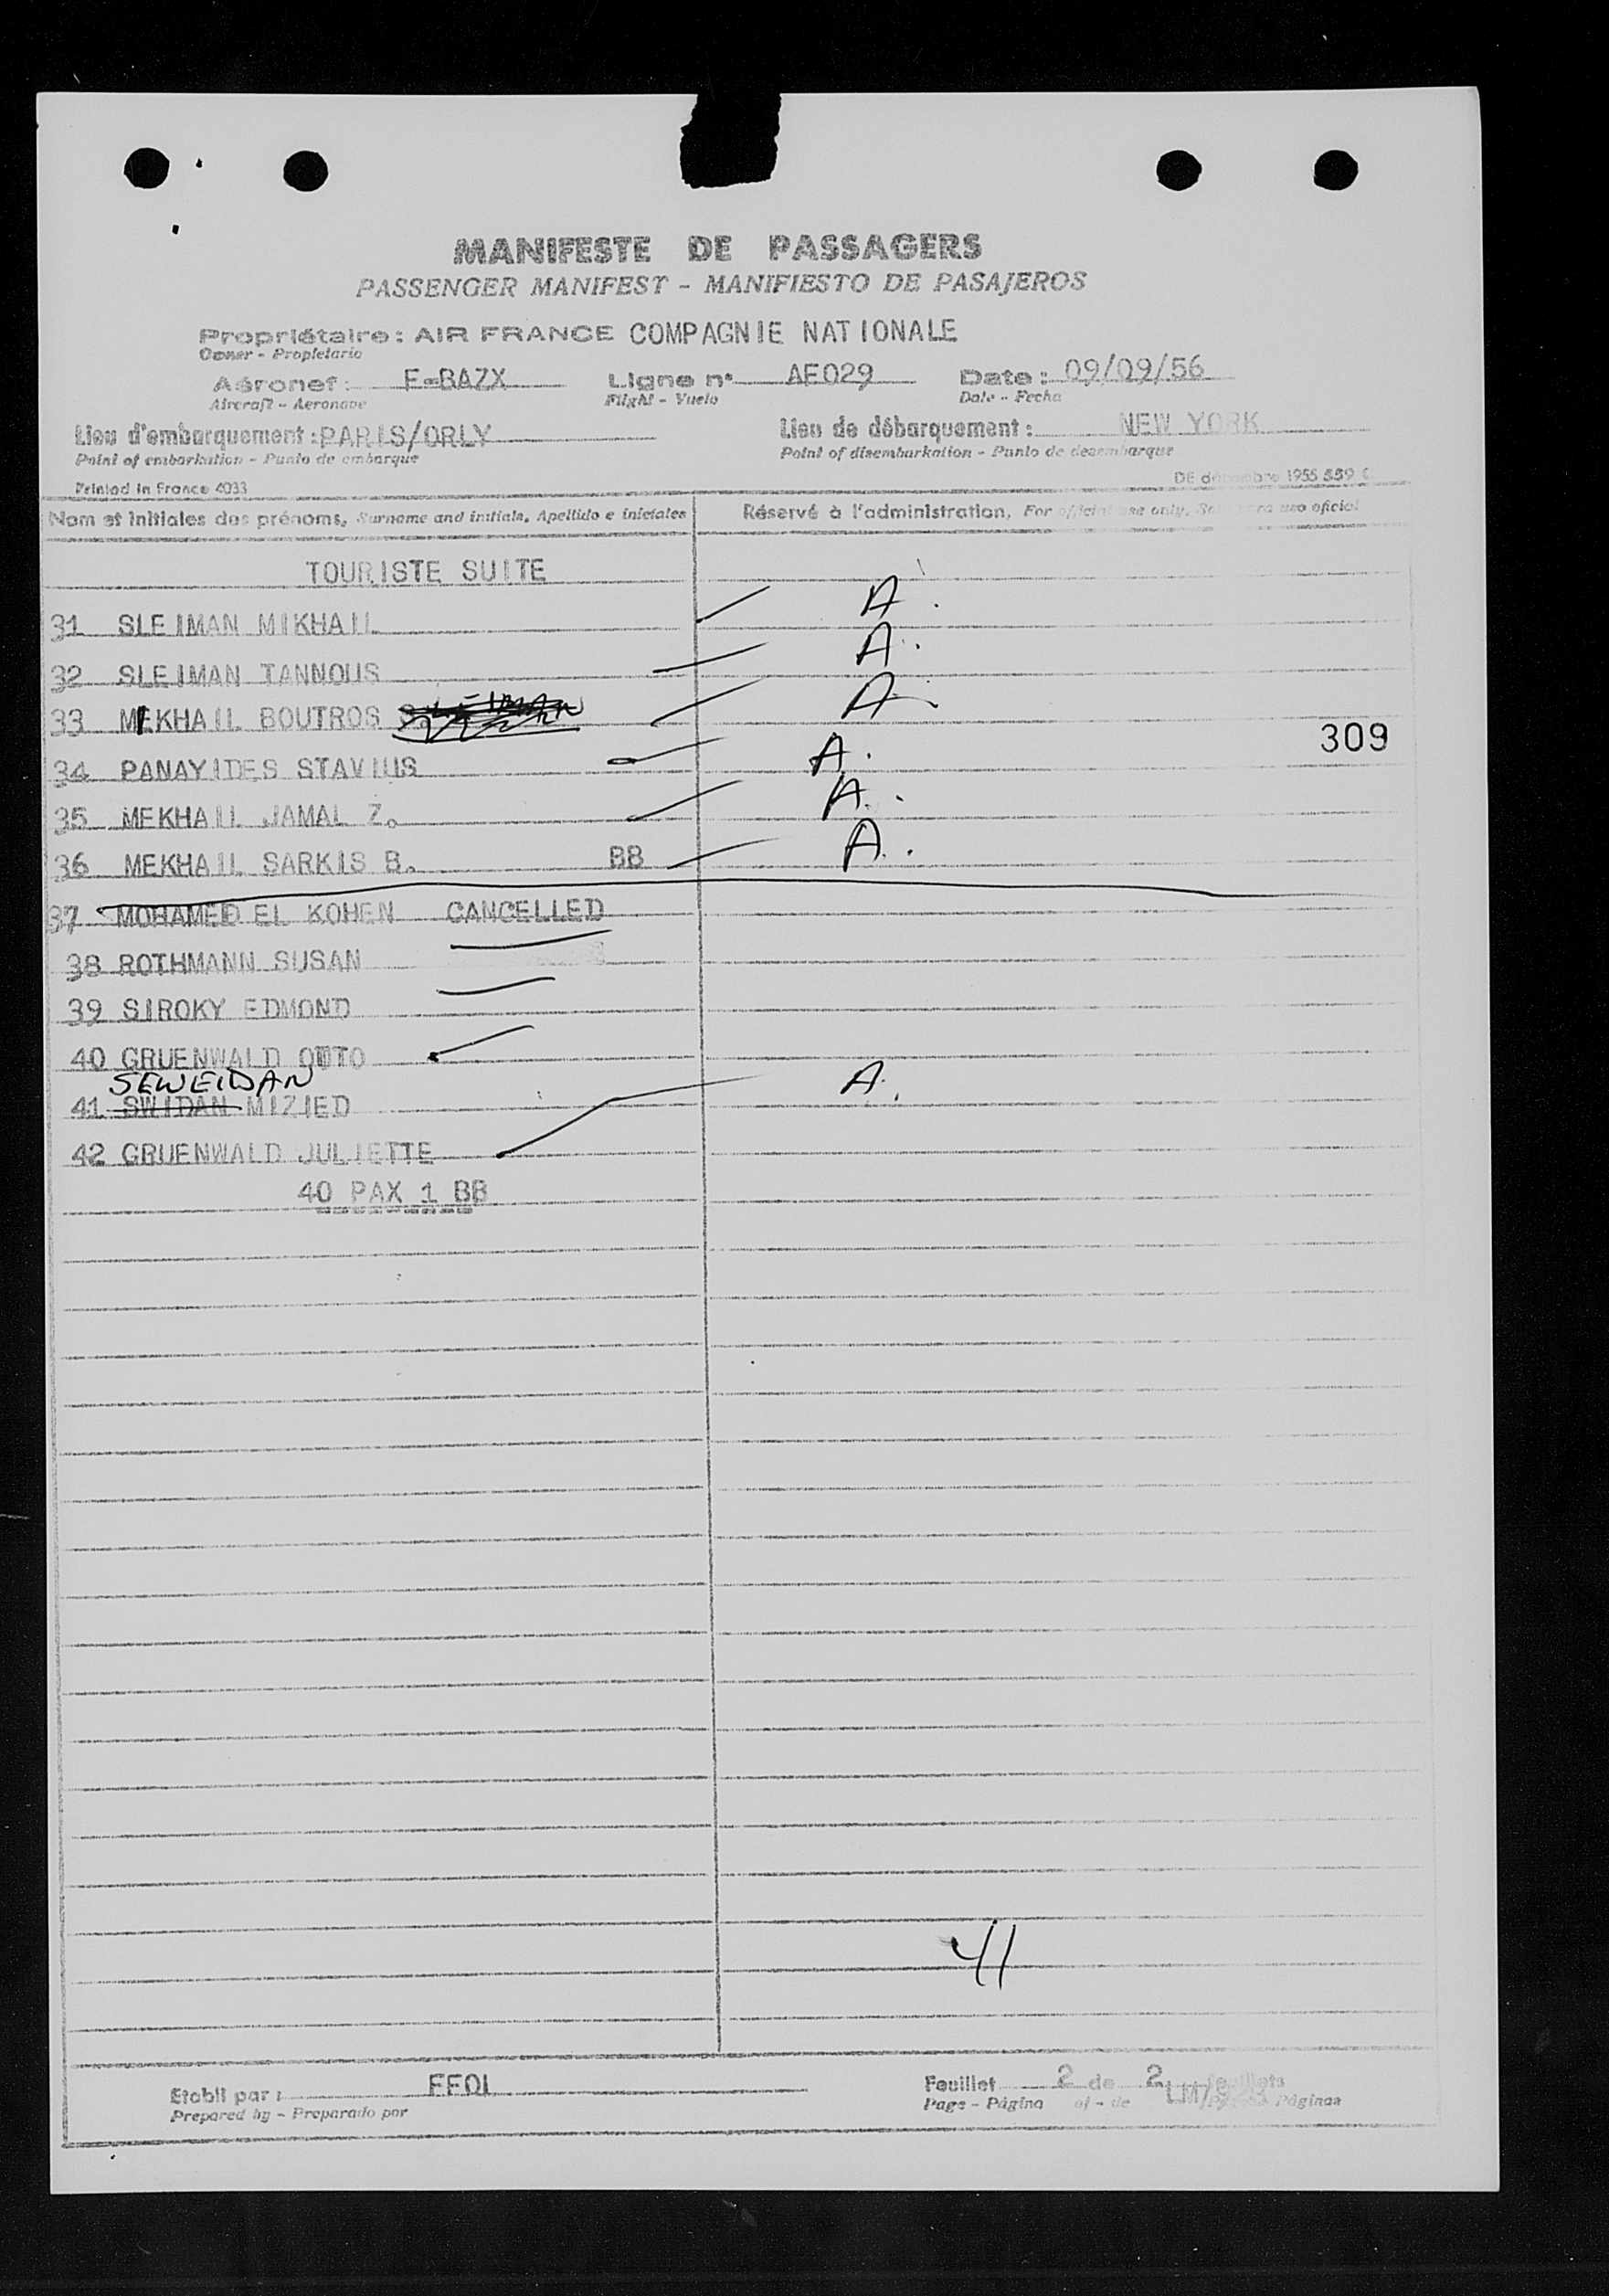 MANIFESTE DE PASSAGERS
PASSENGER MANIFEST - MANIFIESTO DE PASAJEROS
Propriétaire : AIR FRANCE COMPAGNIE NATIONALE
Owner - Propietario
Aéronef : F-BAZX Ligne n° AF029 Date : 09/09/56
Aircraft - Aeronave Flight - Vuelo Date - Fecha
Lieu d'embarquement : PARIS/ORLY Lieu de débarquement : NEW YORK
Point of embarkation - Punto de embarque Point of disembarkation - Punto de desembarque
Printed in France 4033 DE décembre 1955 559
Nom et initiales des prénoms, Surname and initials, Apellido e iniciales Réservé à l'administration, For official use only, uso oficial
TOURISTE SUITE
31 SLEIMAN MIKHAIL A.
32 SLEIMAN TANNOUS A.
33 MIKHAIL BOUTROS SLEIMAN A
309
34 PANAYIDES STAVIUS A.
35 MEKHAIL JAMAL Z. A.
36 MEKHAIL SARKIS B. BB A.
37 MOHAMED EL KOHEN CANCELLED
38 ROTHMANN SUSAN
39 SIROKY EDMOND
40 GRUENWALD OTTO
SEWEIDAN
41 SWIDAN MIZIED A.
42 GRUENWALD JULIETTE
40 PAX 1 BB
41
Etabli par : FFOL Feuillet 2 de 2 feuillets
Prepared by - Preparado por Page - Página of - de LM/ Páginas